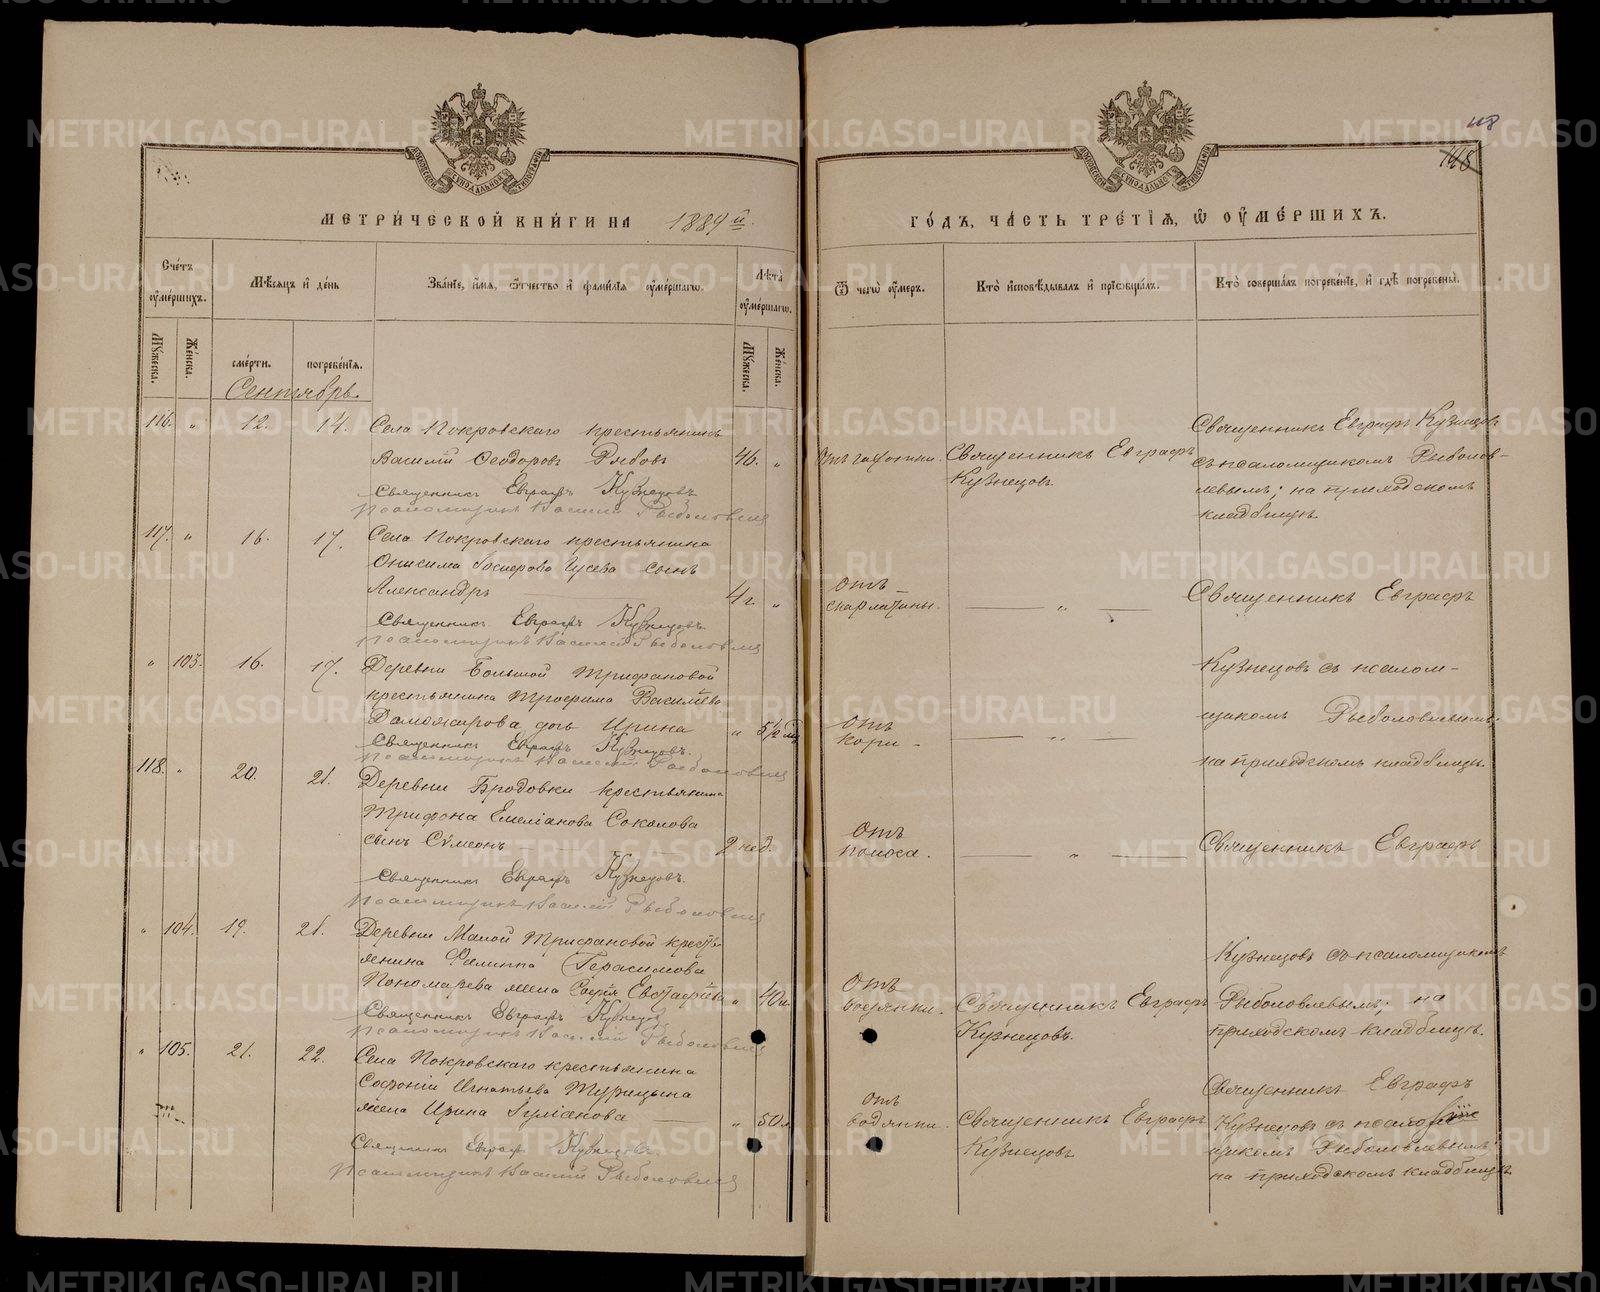 118
МЕТРИЧЕСКОЙ КНИГИ НА 1889й.
ГОДЪ, ЧАСТЬ ТРЕТІЯ, Ѿ ОУМЕРШИХЪ.
Счетъ оумершихъ.
Мѣсяцъ и день
Званіе, имя, ѿчество и фамилія оумершагѡ.
Лѣта оумершагѡ.
Ѿ чегѡ оумеръ.
Кто исповѣдывалъ и пріобщалъ.
Кто совершалъ погребеніе, и гдѣ погребены.
Мужеска.
Женска.
смерти.
погребенія.
Мужеска.
Женска.
Сентябрь.
116. " 12. 14. Села Покровскаго крестьянинъ
Василій Ѳеодоровъ Рябовъ 46. "
Священникъ Евграфъ Кузнецовъ
Псаломщикъ Василій Рыболовлевъ
Священникъ Евграфъ
Кузнецовъ
Священникъ Евграфъ Кузнецовъ
съ псаломщикомъ Рыболов-
левымъ; на приходскомъ
кладбищѣ
117. " 16. 17. Села Покровскаго крестьянина
Онисима Гусева сынъ
Александръ 4 г. "
Священникъ Евграфъ Кузнецовъ
Псаломщикъ Василій Рыболовлевъ
отъ
скарлатины.
"
Священникъ Евграфъ
" 103. 16. 17. Деревни Большой Трифановой
крестьянина Трофима Васильева
Доможирова дочь Ирина " 5½ мѣ
Священникъ Евграфъ Кузнецовъ.
Псаломщикъ Василій Рыболовлевъ
отъ
кори.
"
Кузнецовъ съ псалом-
щикомъ Рыболовлевымъ;
на приходскомъ кладбищѣ.
118. " 20. 21. Деревни Бродовки крестьянина
Трифона Емеліанова Соколова
сынъ Сѵмеонъ 2 нед.
Священникъ Евграфъ Кузнецовъ.
Псаломщикъ Василій Рыболовлевъ
отъ
поноса.
"
Священникъ Евграфъ
" 104. 19. 21. Деревни Малой Трифановой кресть-
янина Филиппа Герасимова
Пономарева жена Софія " 40 л.
Священникъ Евграфъ Кузнецовъ
Псаломщикъ Василій Рыболовлевъ
отъ
водянки.
Священникъ Евграфъ
Кузнецовъ.
Кузнецовъ съ псаломщикомъ
Рыболовлевымъ; на
приходскомъ кладбищѣ.
" 105. 21. 22. Села Покровскаго крестьянина
Софонія Игнатьева Турицына
жена Ирина Іуліанова " 50 л.
Священникъ Евграфъ Кузнецовъ.
Псаломщикъ Василій Рыболовлевъ
отъ
водянки.
Священникъ Евграфъ
Кузнецовъ
Священникъ Евграфъ
Кузнецовъ съ псалом
щикомъ Рыболовлевымъ;
на приходскомъ кладбищѣ
METRIKI.GASO-URAL.RU